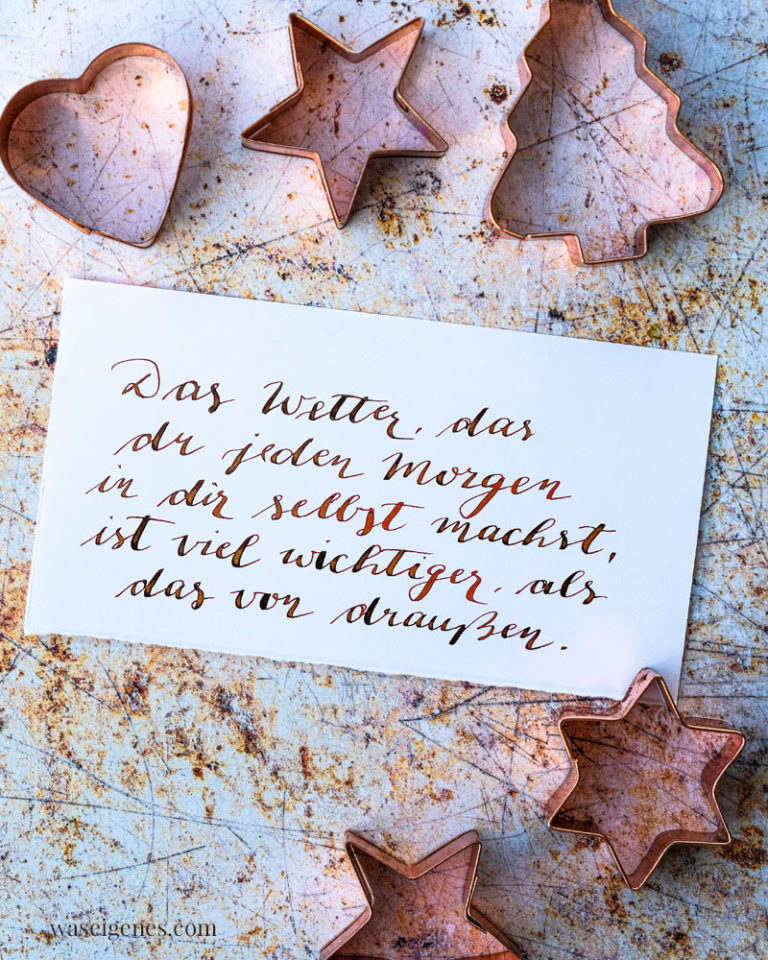 Das Wetter, das
du jeden Morgen
in dir selbst machst,
ist viel wichtiger, als
das von draußen.
waseigenes.com